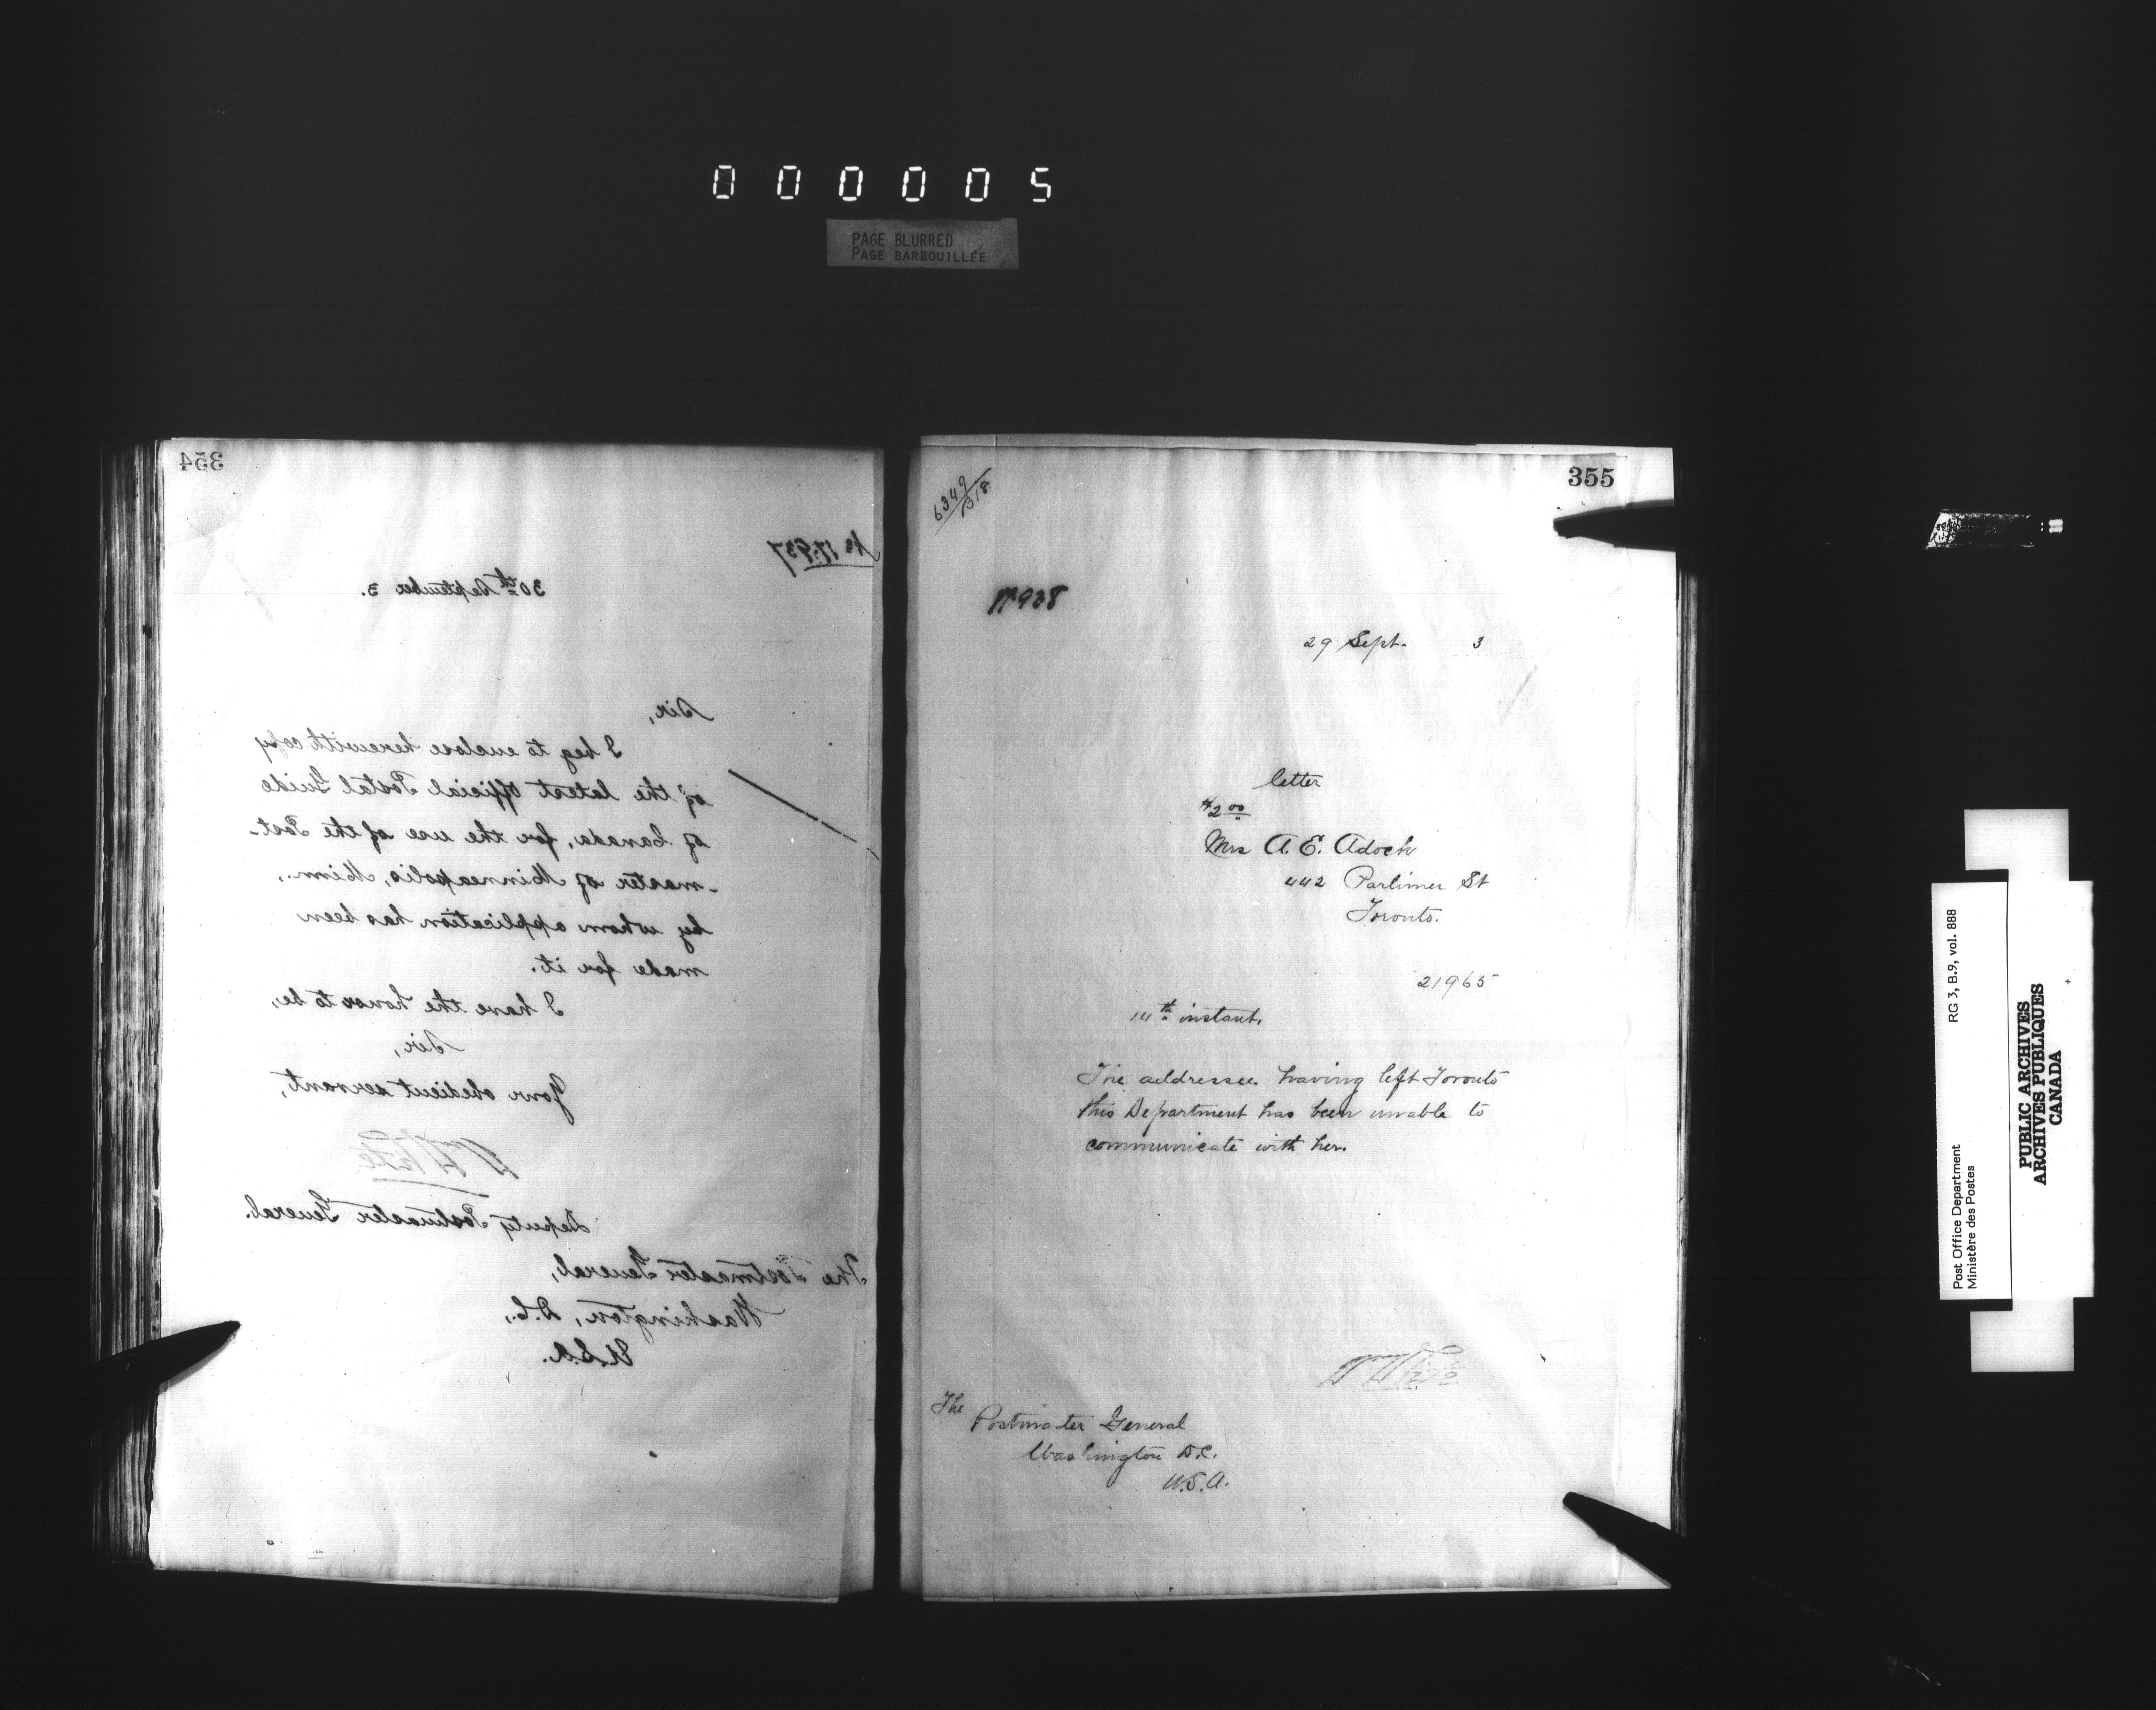 000005
PAGE BLURRED
PAGE BARBOUILLÉE
354
No 17.937
30th September 3.
Sir,
I beg to enclose herewith copy
of the latest Official Postal Guide
of Canada, for the use of the Post-
master of Minneapolis, Minn.,
by whom application has been
made for it.
I have the honor to be,
Sir,
Your obedient servant,
Wm White
Deputy Postmaster General.
The Postmaster General,
Washington, D.C.,
U.S.A.
355
6349/1318
No 938
29 Sept. 3
letter
$2.00
Mrs A. E. Adoch
442 Parlimer St
Toronto.
21965
14th instant,
The addressee having left Toronto
this Department has been unable to
communicate with her.
W White
The
Postmaster General
Washington D.C.
U.S.A.
Post Office Department
Ministère des Postes
RG 3, B.9, vol. 888
PUBLIC ARCHIVES
ARCHIVES PUBLIQUES
CANADA